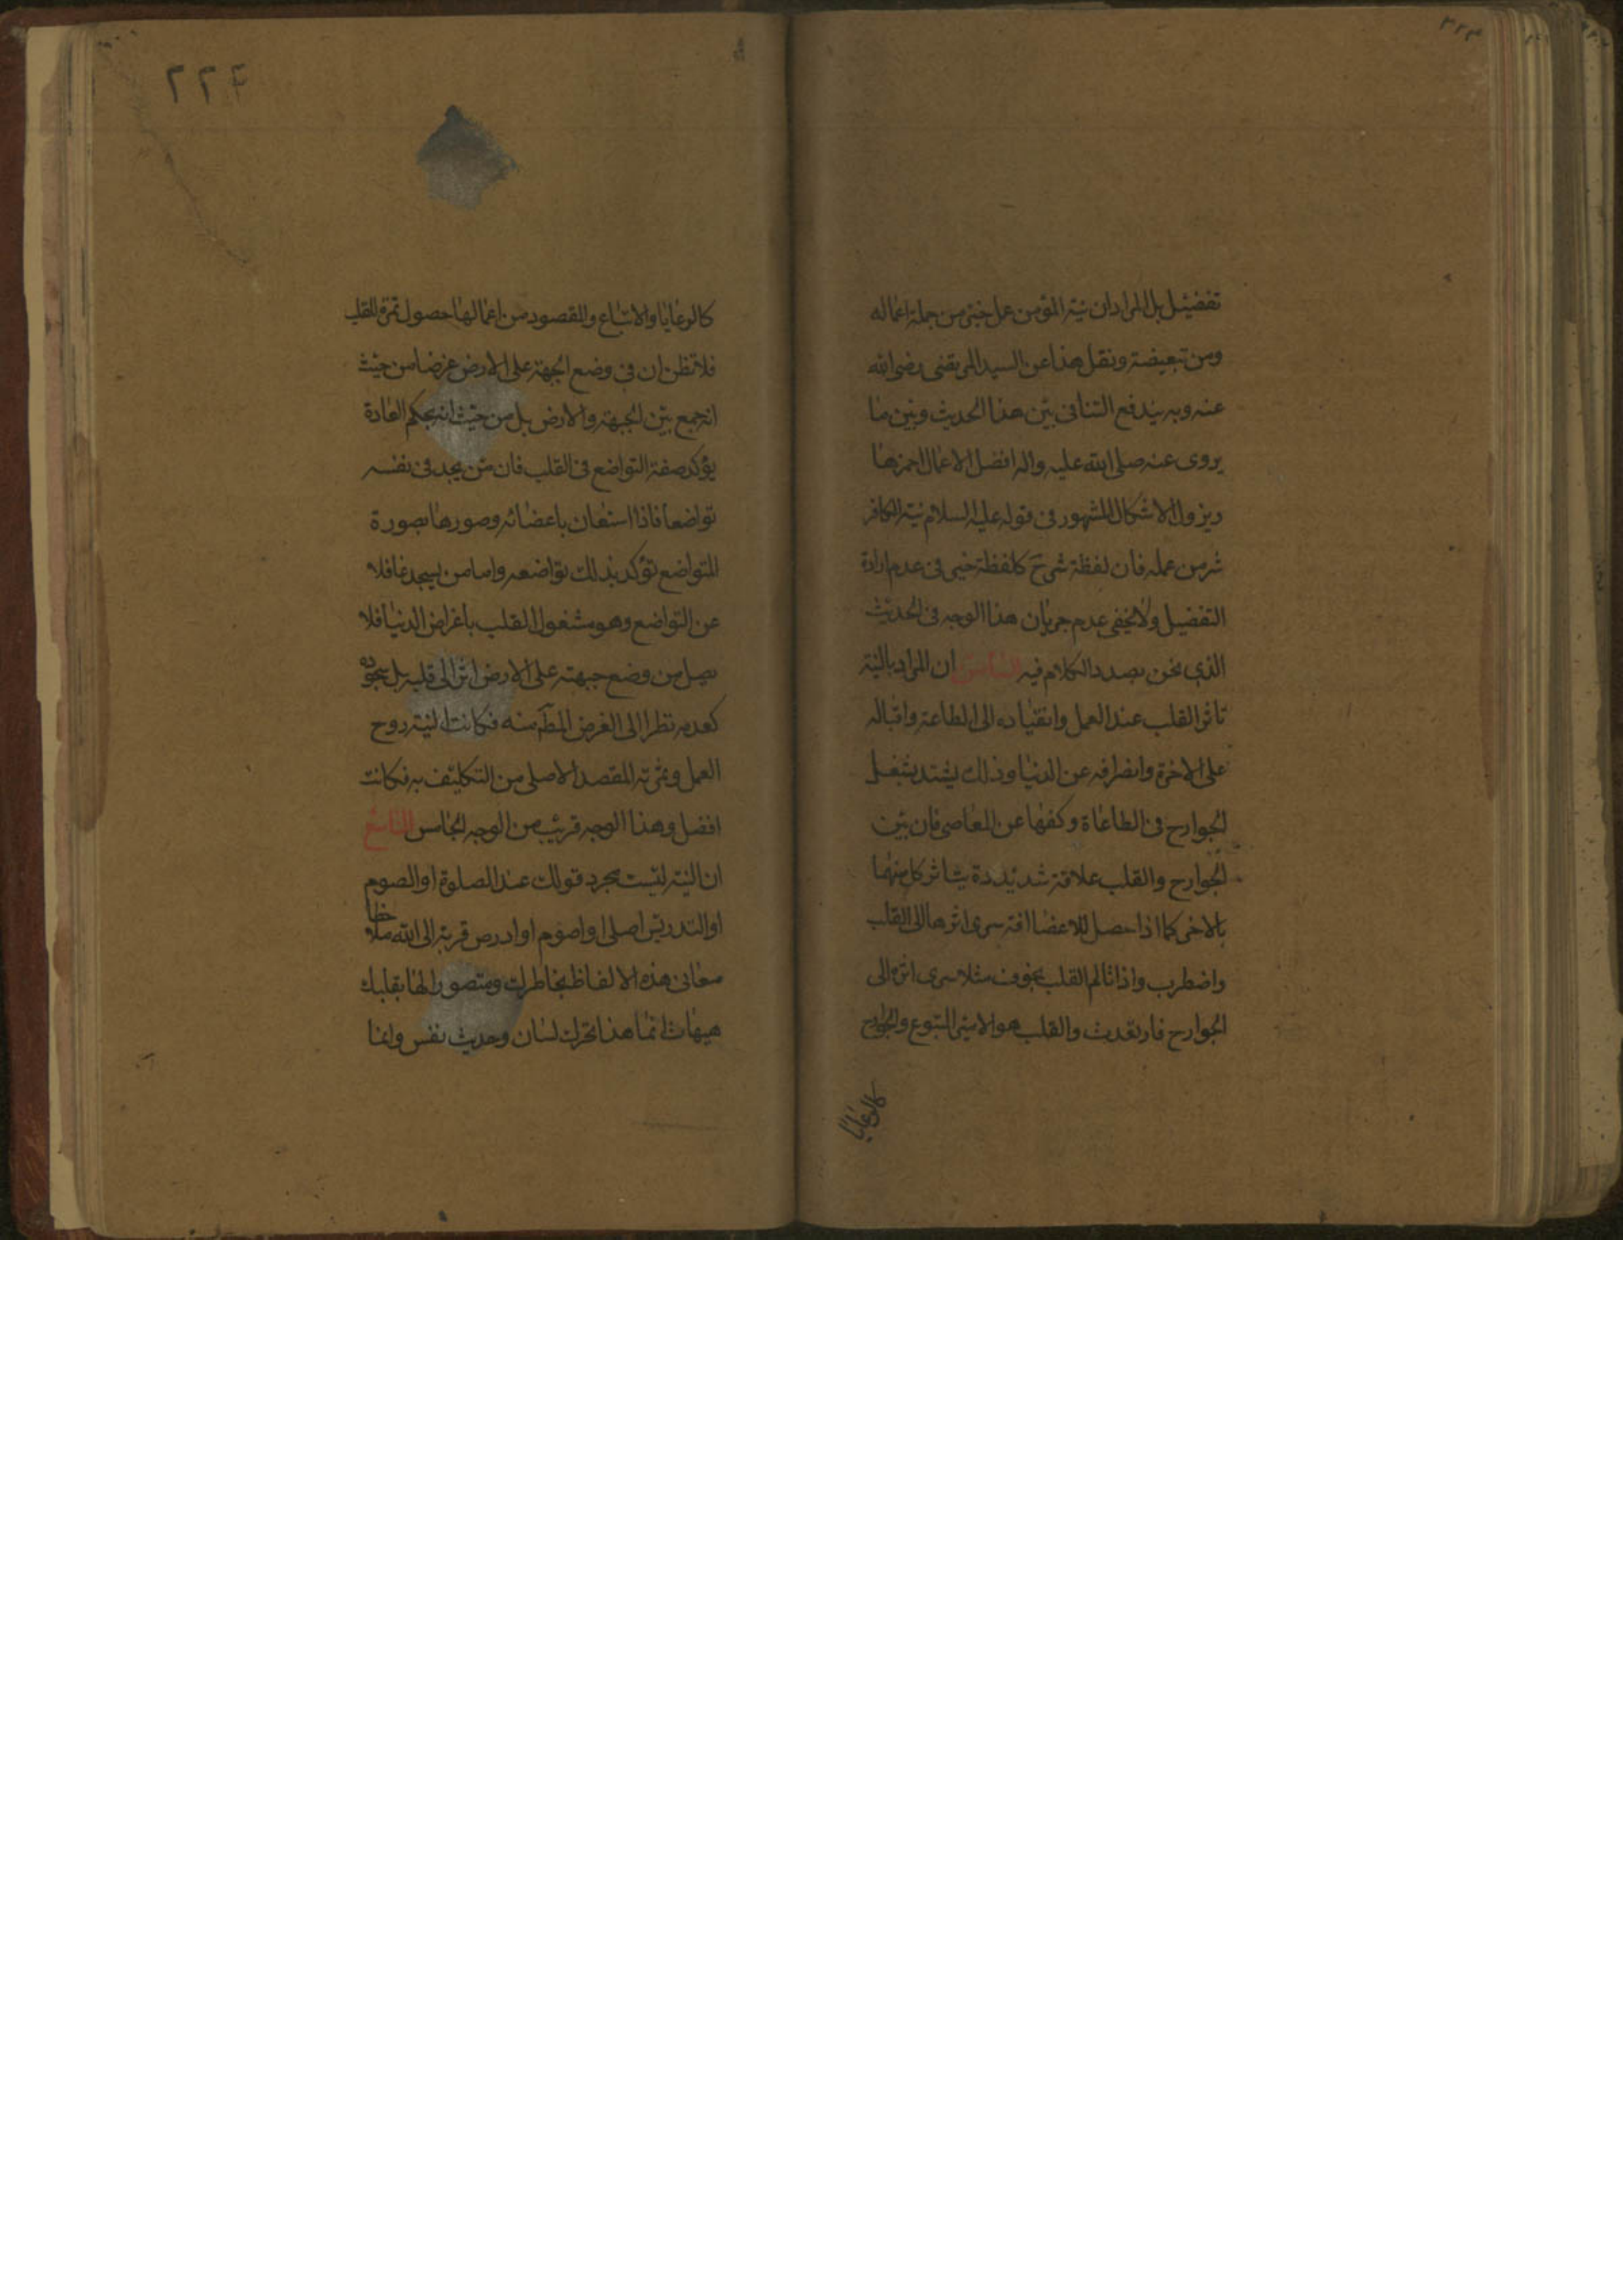 تفضيل بل المراد ان نية المؤمن عمل خير من جملة اعماله
ومن تبعيضة ونقل هذا عن السيد المرتضى رضى الله
عنه وبه يندفع التنافى بين هذا الحديث وبين ما
يروى عنه صلى الله عليه واله افضل الاعمال احمزها
ويزول الاشكال المشهور فى قوله عليه السلام نية الكافر
شر من عمله فان لفظة شر ح كلفظة خير فى عدم ارادة
التفضيل ولا يخفى عدم جريان هذا الوجه فى الحديث
الذى نحن بصدد الكلام فيه الثامن ان المراد بالنية
تاثر القلب عند العمل وانقياده الى الطاعة واقباله
على الاخرة وانصرافه عن الدنيا وذلك يشتد بشغل
الجوارح فى الطاعاة وكفها عن المعاصى فان بين
الجوارح والقلب علاقة شديدة يتاثر كل منهما
بالاخر كما اذا حصل للاعضا افة سرى اثرها الى القلب
واضطرب واذا تالم القلب بخوف مثلا سرى اثره الى
الجوارح فارتعدت والقلب هو الامير المتبوع والجوارح
كالرعايا
٢٢٤
كالرعايا والاتباع والمقصود من اعمالها حصول ثمرة للقلب
فلا تظن ان فى وضع الجبهة على الارض غرضا من حيث
انه جمع بين الجبهة والارض بل من حيث انه بحكم العادة
يؤكد صفة التواضع فى القلب فان من يجد فى نفسه
تواضعا فاذا استعان باعضائه وصورها بصورة
المتواضع تؤكد بذلك تواضعه واما من يسجد غافلا
عن التواضع وهو مشغول القلب باغراض الدنيا فلا
يصل من وضع جبهته على الارض اثر الى قلبه بل سجوده
كعدمه نظرا الى الغرض المط منه فكانت النية روح
العمل وثمرته المقصد الاصلى من التكليف به فكانت
افضل وهذا الوجه قريب من الوجه الخامس التاسع
ان النية ليست مجرد قولك عند الصلوة او الصوم
او التدريس اصلى او اصوم او ادرس قربة الى الله ملاحظا
معانى هذه الالفاظ بخاطرك ومتصورا لها بقلبك
هيهات انما هذا تحرك لسان وحديث نفس وانما